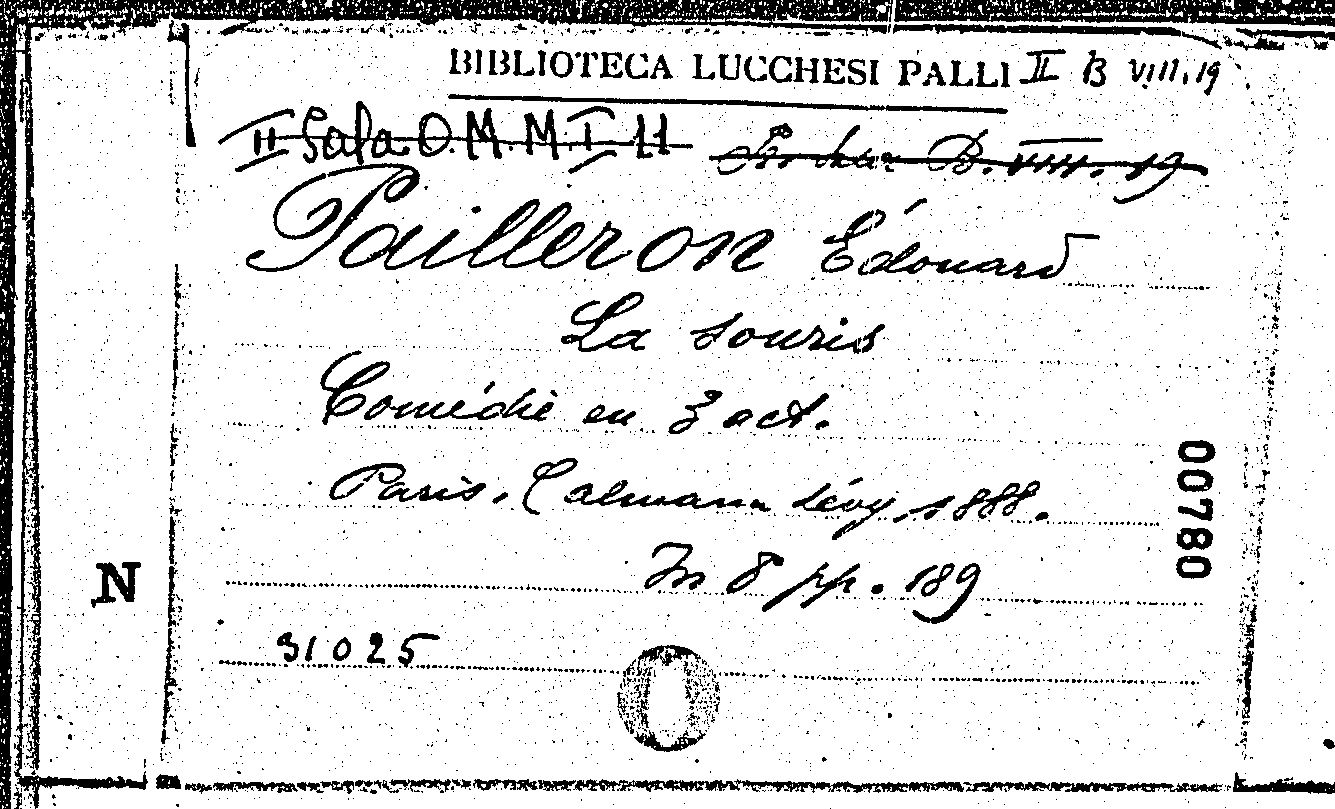 BIBLIOTECA LUCCHESI PALLI II B VIII.19
II Sala O. M. M. I 11 B. VIII. 19
Pailleron Édouard
La souris
Comédie en 3 act.
Paris. Calmann Lévy, 1888.
In 8 pp. 189
31025
00780
N